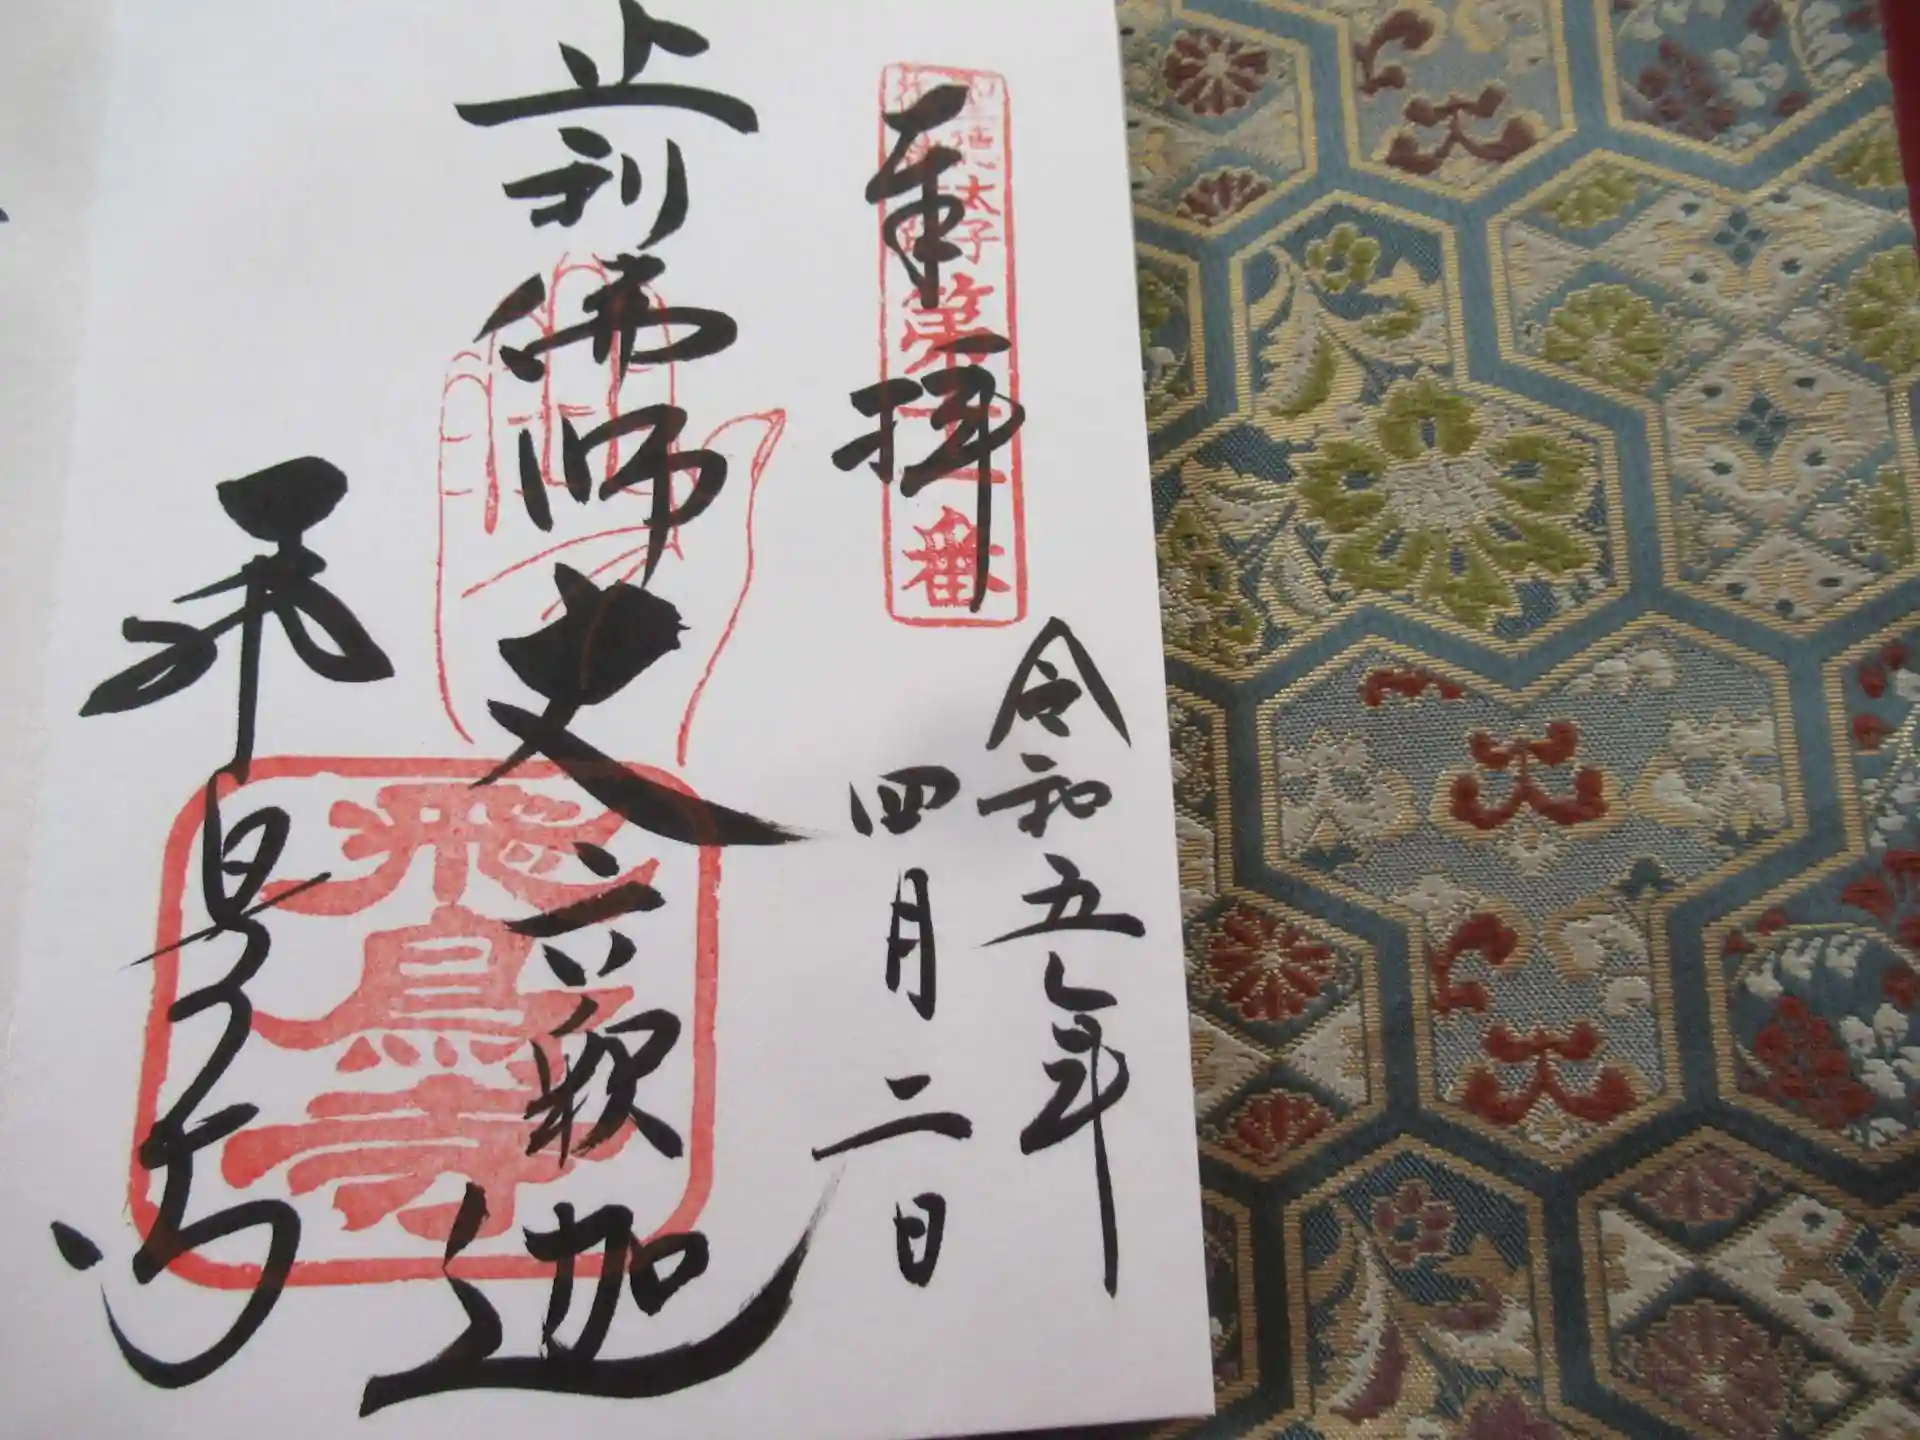 奉拝
聖徳太子
第十一番
令和五年
四月二日
止利佛師丈六釈迦
飛鳥寺
飛鳥寺